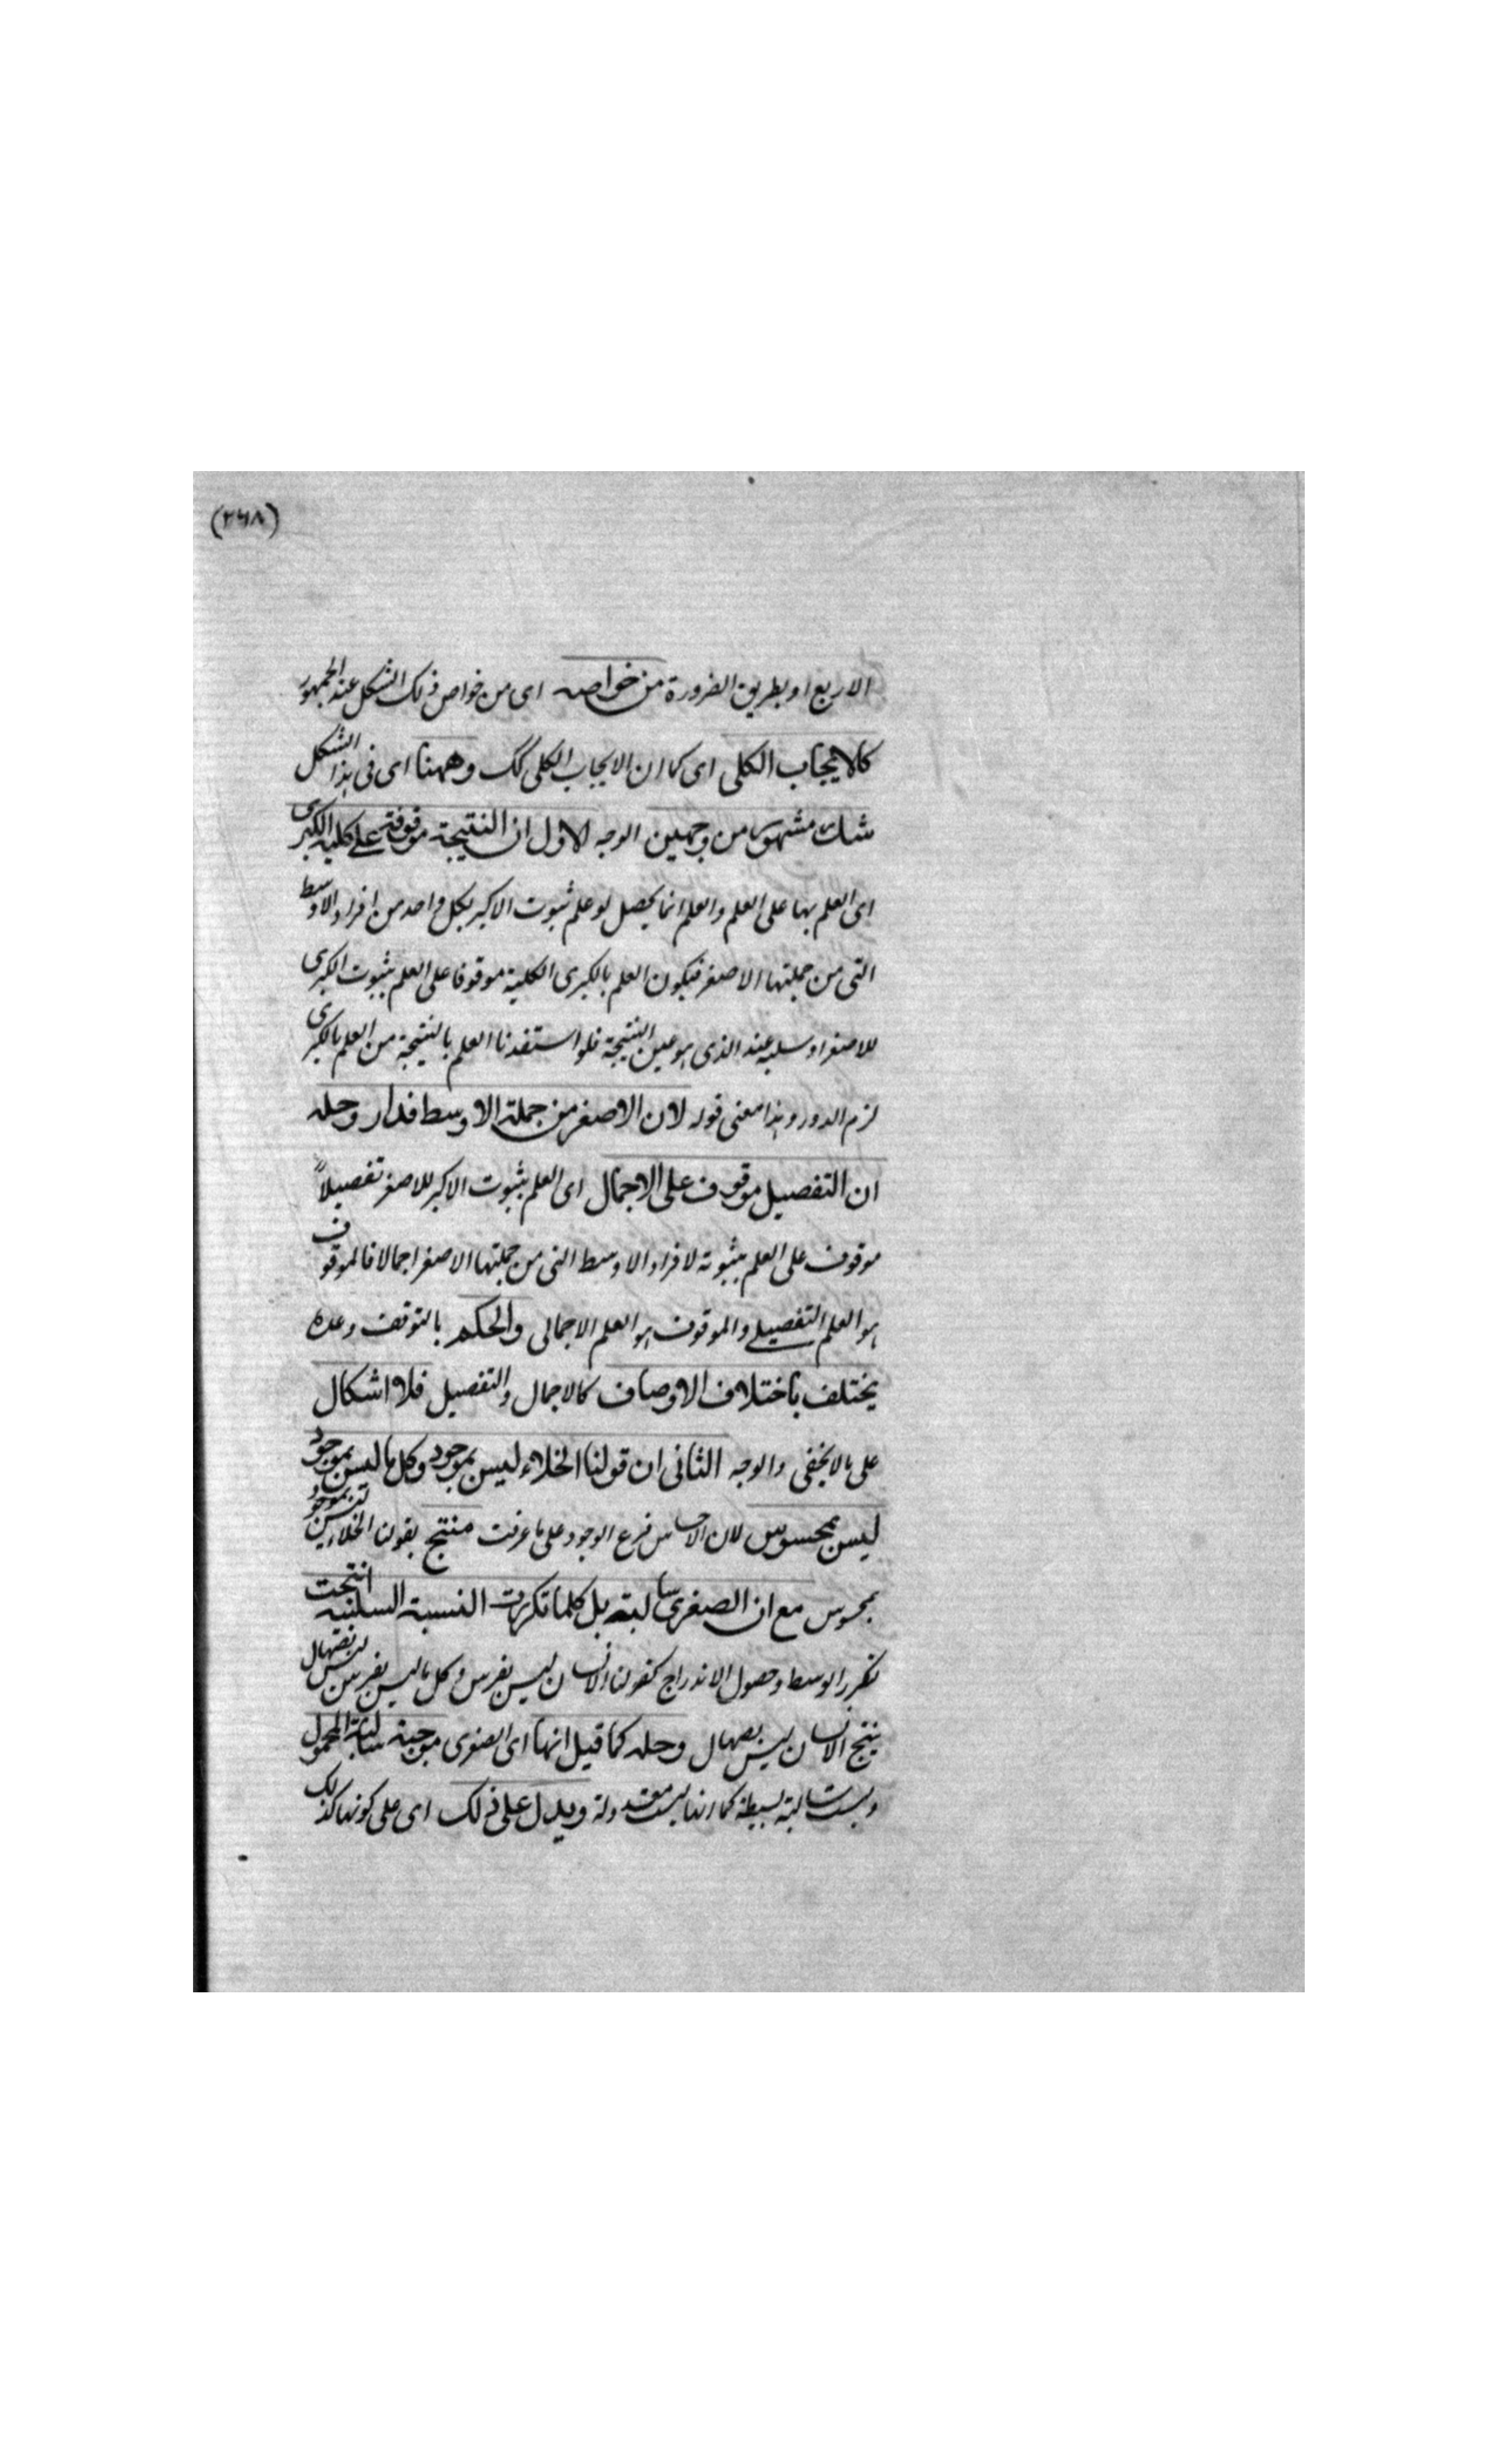 (٢٦٨)
الاربع او بطريق الضرورة من خواصه اى من خواص ذلك الشكل عند الجمهور
كالايجاب الكلى اى كما ان الايجاب الكلى كك وههنا اى فى هذا الشكل
شك مشهور من وجهين الوجه الاول ان النتيجة موقوفة على كلية الكبرى
اى العلم بها على العلم والعلم انما يحصل لو علم ثبوت الاكبر لكل واحد من افراد الاوسط
التى من جملتها الاصغر فيكون العلم بالكبرى الكلية موقوفا على العلم بثبوت الكبرى
للاصغر او سلبه عند الذى هو عين النتيجة فلو استفدنا العلم بالنتيجة من العلم بالكبرى
لزم الدور و هذا معنى قوله لان الاصغر من جملة الاوسط فدار وحله
ان التفصيل موقوف على الاجمال اى العلم بثبوت الاكبر للاصغر تفصيلاً
موقوف على العلم بثبوته لافراد الاوسط التى من جملتها الاصغر اجمالا فالموقوف
هو العلم التفصيلے والموقوف هو العلم الاجمالى والحكم بالتوقف وعدمه
يختلف باختلاف الاوصاف كالاجمال والتفصيل فلا اشكال
على ما لا يخفى والوجه الثانى ان قولنا الخلاء ليس بموجود وكل ما ليس بموجود
ليس بمحسوس لان الاحساس فرع الوجود على ما عرفت منتج لقولنا الخلاء ليس
بمحسوس مع ان الصغرى سالبة بل كلما تكررت النسبة السلبية انتجت
لتكرر الوسط وحصول الاندراج كقولنا الانسان ليس بفرس وكل ما ليس بفرس ليس بصهال
ينتج الانسان ليس بصهال وحله كما قيل انها اى الصغرى موجبة سالبة المحمول
وليست سالبة بسيطة كما انها ليست معدولة ويدل على ذلك اى على كونها كذلك